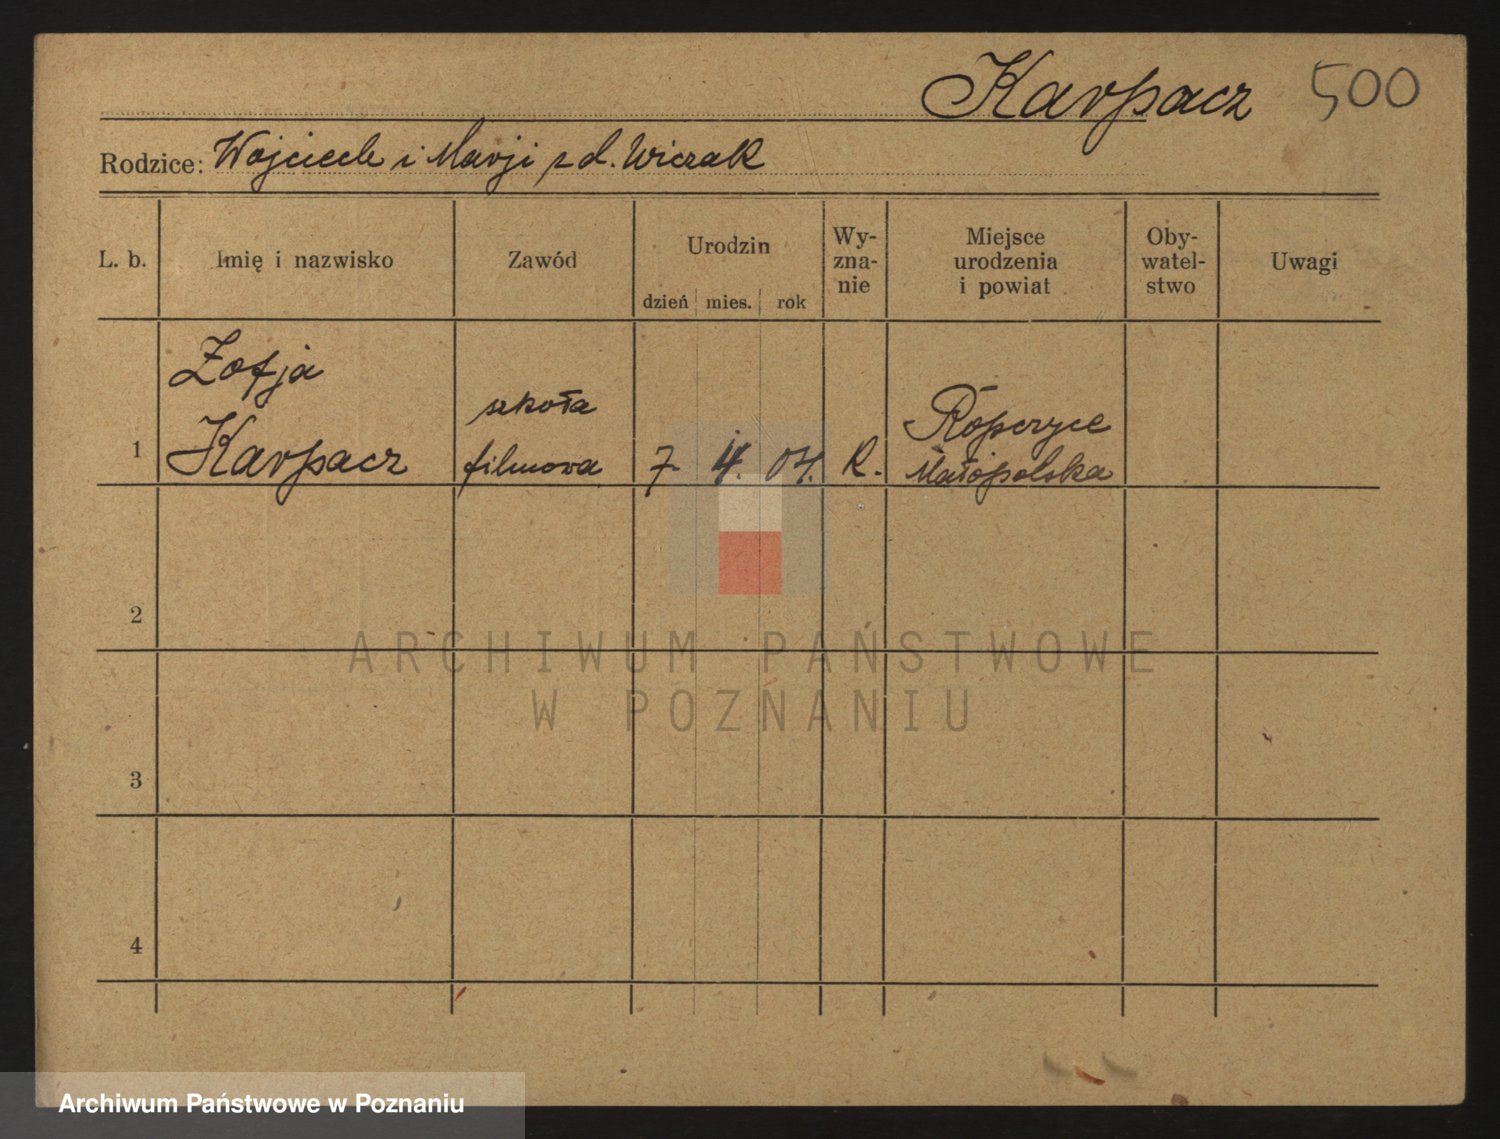 Karpacz 500
Rodzice: Wojciech i Marji z d. Wiczak
L. b. Imię i nazwisko Zawód Urodzin dzień mies. rok Wy-zna-nie Miejsce urodzenia i powiat Oby-watel-stwo Uwagi
Zofja
Karpacz
szkoła
filmowa
1 7. 4. 04. R.
Ropczyce
Małopolska
2
3
4
ARCHIWUM PAŃSTWOWE
W POZNANIU
Archiwum Państwowe w Poznaniu